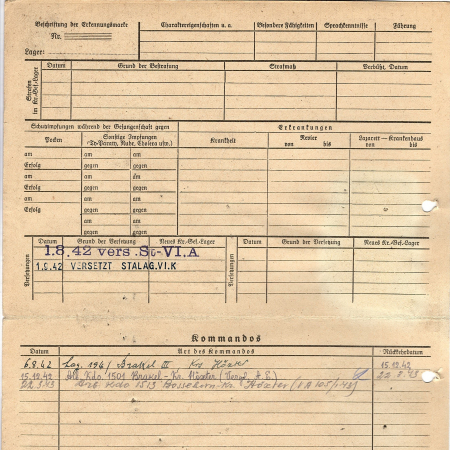 Beschriftung der Erkennungsmarke
Nr.
Lager:
Charaktereigenschaften u. a.
Besondere Fähigkeiten
Sprachkenntnisse
Führung
Strafen im Kr.-Gef.-Lager
Datum
Grund der Bestrafung
Strafmaß
Verbüßt, Datum
Schutzimpfungen während der Gefangenschaft gegen
Erkrankungen
Pocken
Sonstige Impfungen
(Ty.-Paraty., Ruhr, Cholera usw.)
Krankheit
Revier
von bis
Lazarett — Krankenhaus
von bis
am am am
Erfolg gegen gegen
am am am
Erfolg gegen gegen
am am am
Erfolg gegen gegen
am am
gegen gegen
Versetzungen
Datum Grund der Versetzung Neues Kr.-Gef.-Lager
Versetzungen
Datum Grund der Versetzung Neues Kr.-Gef.-Lager
1.8.42 vers. St-VI.A
1.9.42 VERSETZT STALAG.VI.K
Kommandos
Datum Art des Kommandos Rückkehrdatum
6.8.42 Brakel III Krs Höxter 15.12.42
15.12.42 Kdo. 1501 Brakel - Kr. Höxter
Kdo 1513